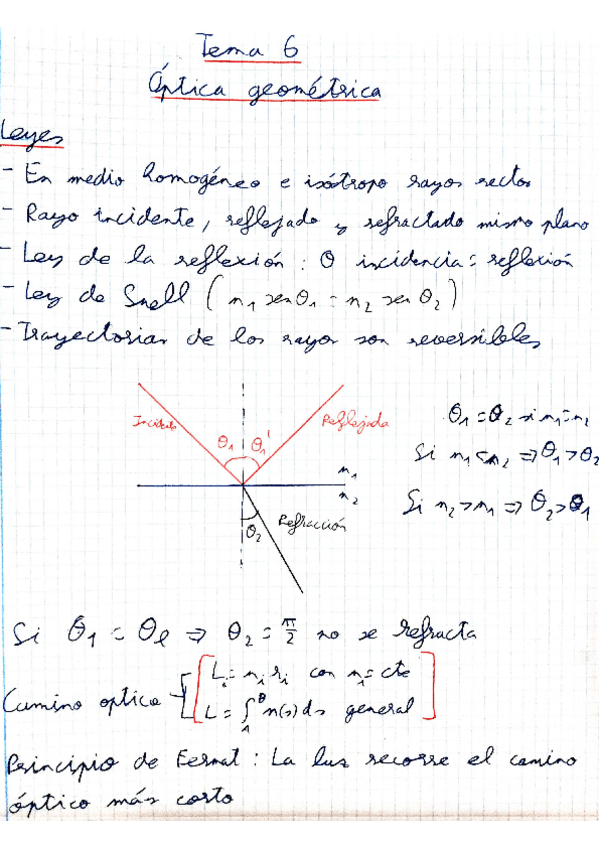 Tema 6
Óptica geométrica
Leyes
- En medio homogéneo e isótropo rayos rectos
- Rayo incidente, reflejado y refractado mismo plano
- Ley de la reflexión : θ incidencia = reflexión
- Ley de Snell ( n₁ sen θ₁ = n₂ sen θ₂ )
- Trayectorias de los rayos son reversibles
Reflejada
θ₁ θ₁'
n₁
n₂
θ₂
Refracción
θ₁ = θ₂ si n₁ = n₂
Si n₁ < n₂ ⇒ θ₁ > θ₂
Si n₂ > n₁ ⇒ θ₂ > θ₁
Si θ₁ = θl ⇒ θ₂ = π/2 no se refracta
Camino optico
Lᵢ = nᵢ rᵢ con nᵢ = cte
L = ∫ₐᴮ n(s) ds general
Principio de Fermat : La luz recorre el camino
óptico más corto